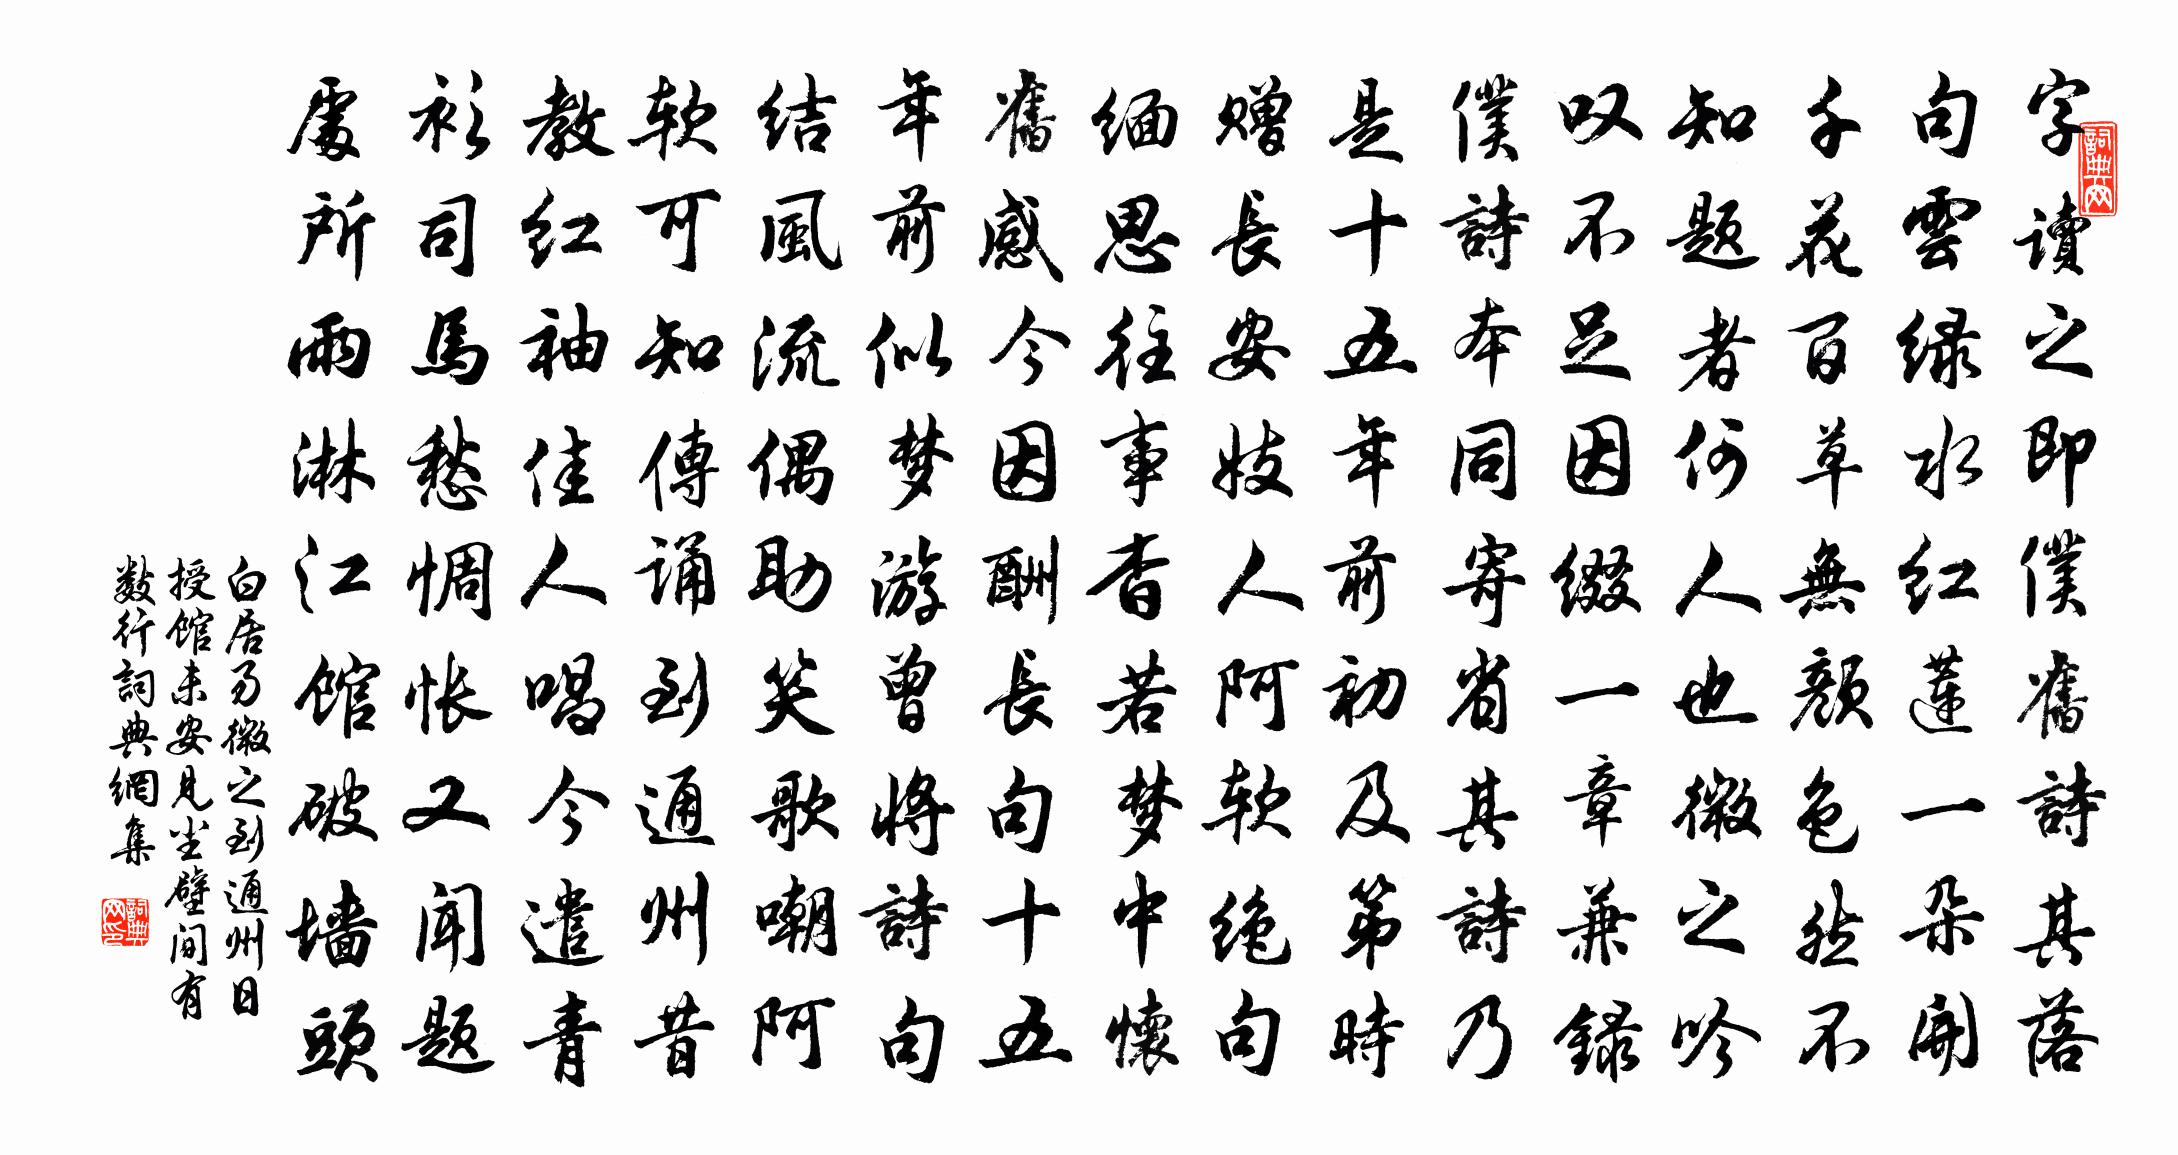 字讀之即僕舊詩其落
句雲绿水红蓮一朵開
千花百草無顔色然不
知题者何人也微之吟
叹不足因缀一章兼録
僕詩本同寄省其詩乃
是十五年前初及第時
赠長安妓人阿软绝句
缅思往事杳若梦中懷
舊感今因酬長句十五
年前似梦游曾将詩句
结風流偶助笑歌嘲阿
软可知傳诵到通州昔
教红袖佳人唱今遣青
衫司馬愁惆怅又闻题
處所雨淋江馆破墙頭
白居易微之到通州日
授馆未安見尘壁间有
数行詞典網集
詞典网
詞典网印